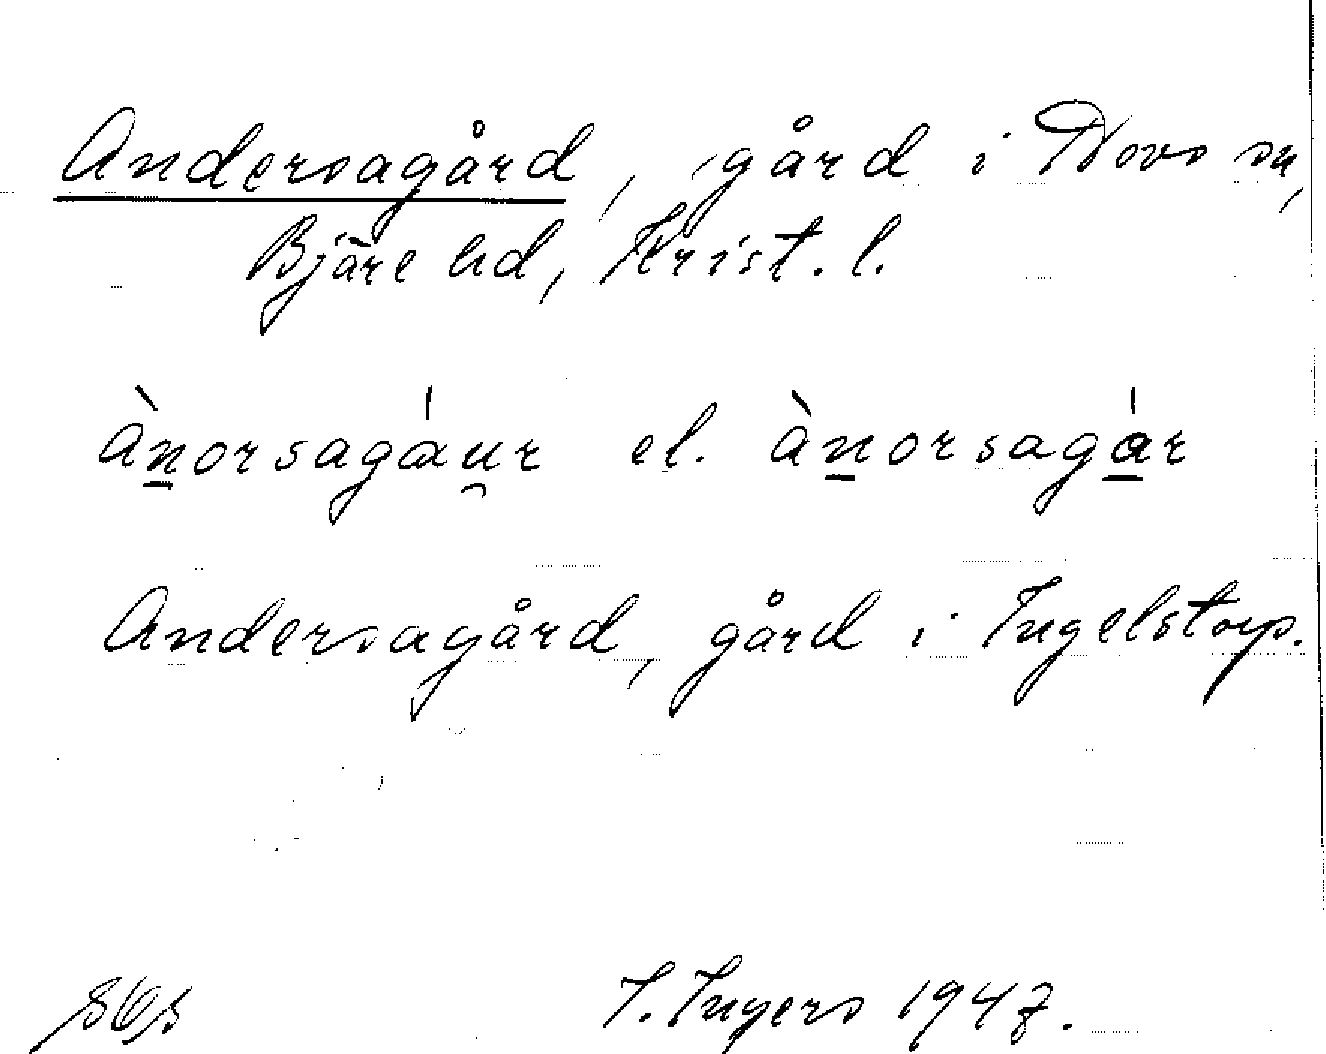 Andersagård, gård i Hovs sn,
Bjäre hd, Krist. l.
ànorsagáur el. ànorsagár
Andersagård, gård i Ingelstorp.
I. Ingers 1947.